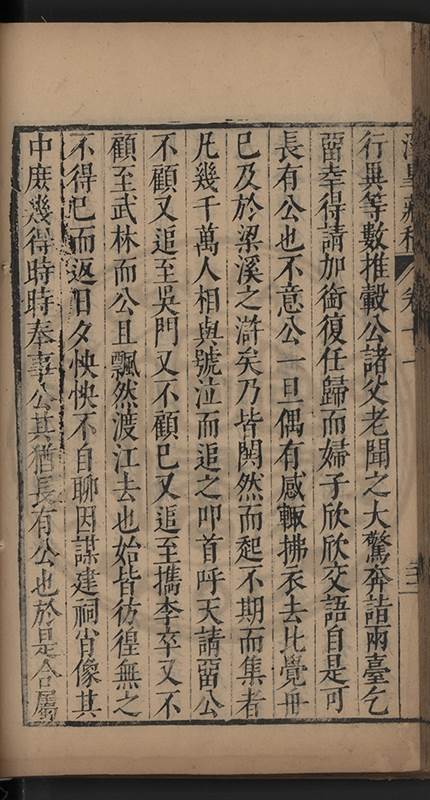 行異等數推轂公諸父老聞之大驚奔詣兩臺乞
畱幸得請加銜復任歸而婦子欣欣交語自是可
長有公也不意公一旦偶有感輒拂衣去比覺舟
已及於梁溪之滸矣乃皆闐然而起不期而集者
凡幾千萬人相與號泣而追之叩首呼天請畱公
不顧又追至吳門又不顧已又追至檇李卒又不
顧至武林而公且飄然渡江去也始皆彷徨無之
不得已而返日夕怏怏不自聊因謀建祠肖像其
中庶幾得時時奉事公其猶長有公也於是合屬